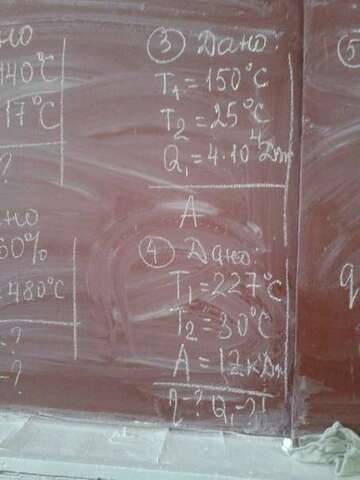 но
140°C
17°C
?
но
60%
480°C
-?
-?
③ Дано:
T₁ = 150°C
T₂ = 25°C
Q₁ = 4·10⁴ Дж
A
④ Дано:
T₁ = 227°C
T₂ = 30°C
A = 12 кДж
η-? Q₁-?
⑤
q